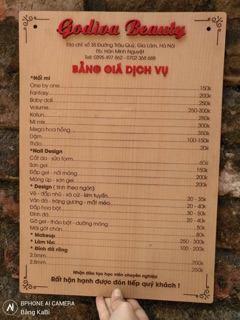 Godiva Beauty
Địa chỉ: số 35 Đường Trâu Quỳ, Gia Lâm, Hà Nội
Đc: Hàn Minh Nguyệt
Tel: 0396 497 862 - 0702 308 688
BẢNG GIÁ DỊCH VỤ
*Nối mi
One by one 150k
Fantasy 200k
Baby doll 250k
Volume 250-300k
Katun 250k
Mi mix 300k
Mega hoa hồng 350k
Dặm 100-150k
Tháo 20k
*Nail Design
Cắt da - sửa form
Sơn gel
Đắp gel - nối móng 200k
Móng úp - sơn gel 200k
* Design ( tính theo ngón)
Vẽ - đắp nhũ - xà cừ - kim tuyến
Vân đá - tráng gương - mắt mèo 20 - 35k
Đắp hoa bột 20 - 40k
Đính đá 20 - 50k
Gỡ gel - tháo bột - dưỡng móng 50k
Mài gót chân 200k
* Makeup 80k
* Làm tóc 250 - 300k
* Đính đá răng 100 - 200k
2.5mm 200k
2.8mm 250k
Nhận đào tạo học viên chuyên nghiệp
Rất hận hạnh được đón tiếp quý khách !
BPHONE AI CAMERA
Bảng KaBi